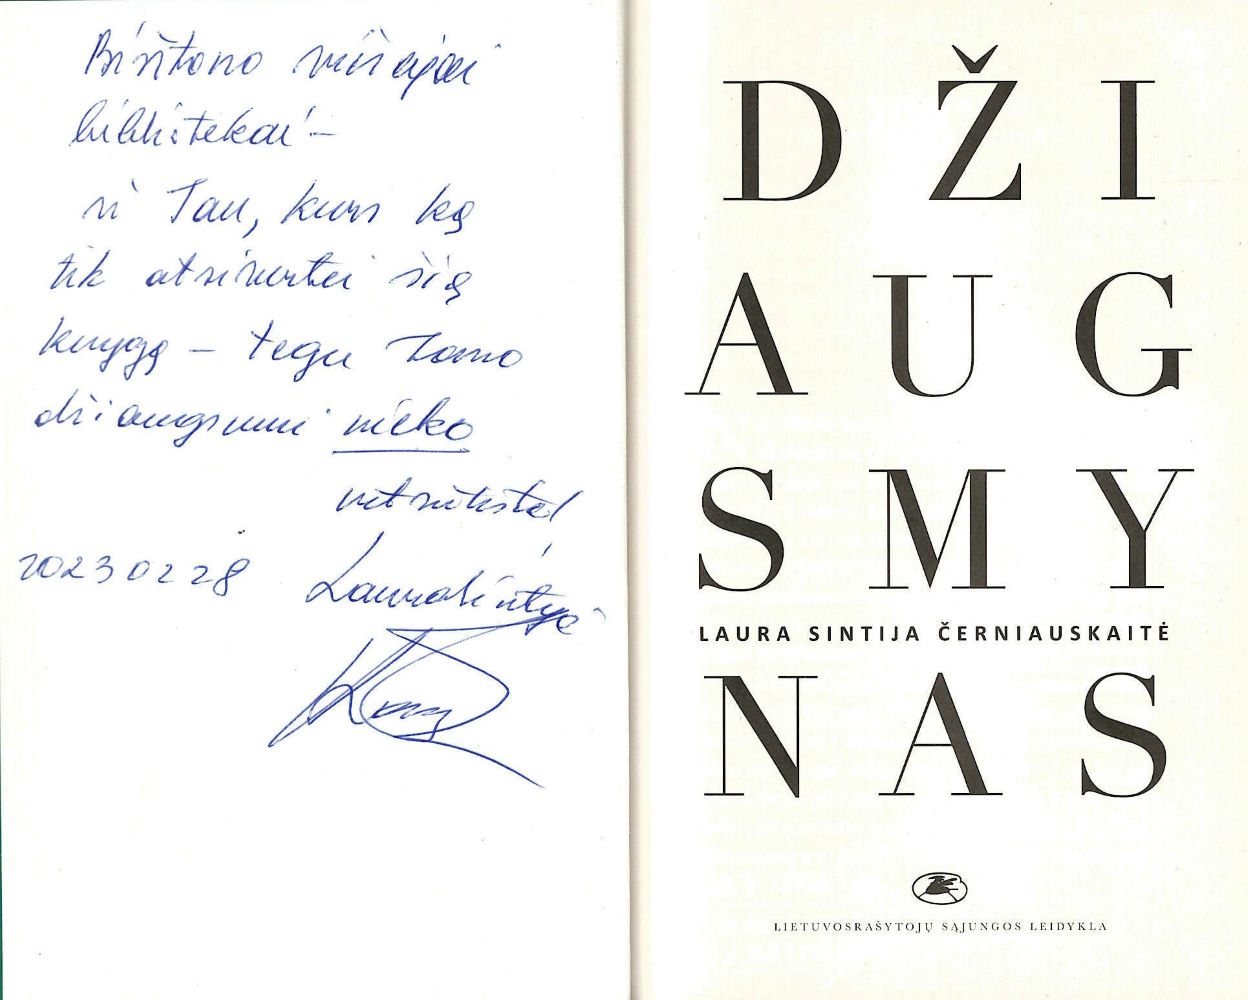 Birštono viešajai
bibliotekai –
ir Tau, kuris ką
tik atsivertei šią
knygą – tegu Tavo
džiaugsmui nieko
netrūksta!
20230228 Laura Sintija
DŽI
AUG
SMY
LAURA SINTIJA ČERNIAUSKAITĖ
NAS
LIETUVOS RAŠYTOJŲ SĄJUNGOS LEIDYKLA